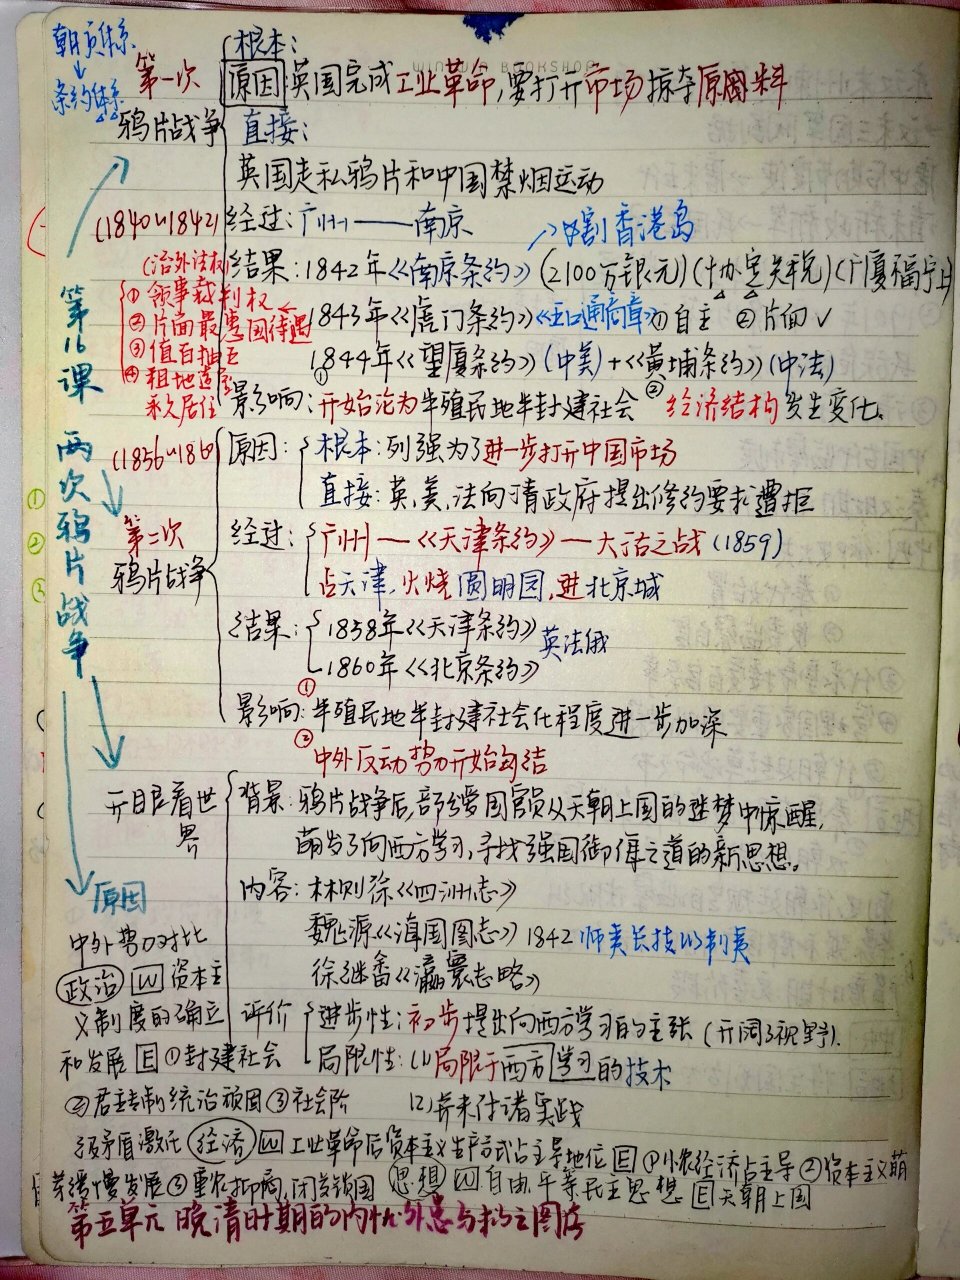 朝贡体系
↓
条约体系
第一次
鸦片战争
(1840~1842)
根本:
WIN BOOKSHOP
原因:英国完成工业革命,要打开市场掠夺原料
直接:
英国走私鸦片和中国禁烟运动
经过:广州——南京
→割香港岛
结果:1842年《南京条约》(2100万银元)(协定关税)(广厦福宁上
1843年《虎门条约》《五口通商章》①自主 ②片面√
1844年《望厦条约》(中美)+《黄埔条约》(中法)
影响:①开始沦为半殖民地半封建社会 ②经济结构发生变化.
(治外法权)
①领事裁判权
②片面最惠国待遇
③值百抽五
④租地造屋
永久居住
第16课 两次鸦片战争
(1856~1860)
第二次
鸦片战争
原因:
根本:列强为了进一步打开中国市场
直接:英,美,法向清政府提出修约要求遭拒
经过:
广州—《天津条约》—大沽之战(1859)
占天津,火烧圆明园,进北京城
结果:
1858年《天津条约》
1860年《北京条约》
英法俄
影响:①半殖民地半封建社会化程度进一步加深
②中外反动势力开始勾结
开眼看世
界
背景:鸦片战争后,部分爱国官员从天朝上国的迷梦中惊醒,
萌发了向西方学习,寻找强国御侮之道的新思想。
内容:林则徐《四洲志》
魏源《海国图志》1842 师夷长技以制夷
徐继畬《瀛寰志略》
评价
进步性:初步提出向西方学习的主张(开阔了视野).
局限性:(1)局限于西方学习的技术
(2)并未付诸实践
原因
中外势力对比
政治 W 资本主
义制度的确立
和发展 E ①封建社会
②君主专制统治顽固③社会阶
级矛盾激化 经济 W 工业革命后资本主义生产方式占主导地位 E ①小农经济占主导②资本主义萌
芽缓慢发展③重农抑商,闭关锁国 思想 W 自由平等民主思想 E 天朝上国
第五单元 晚清时期的内忧外患与救亡图存